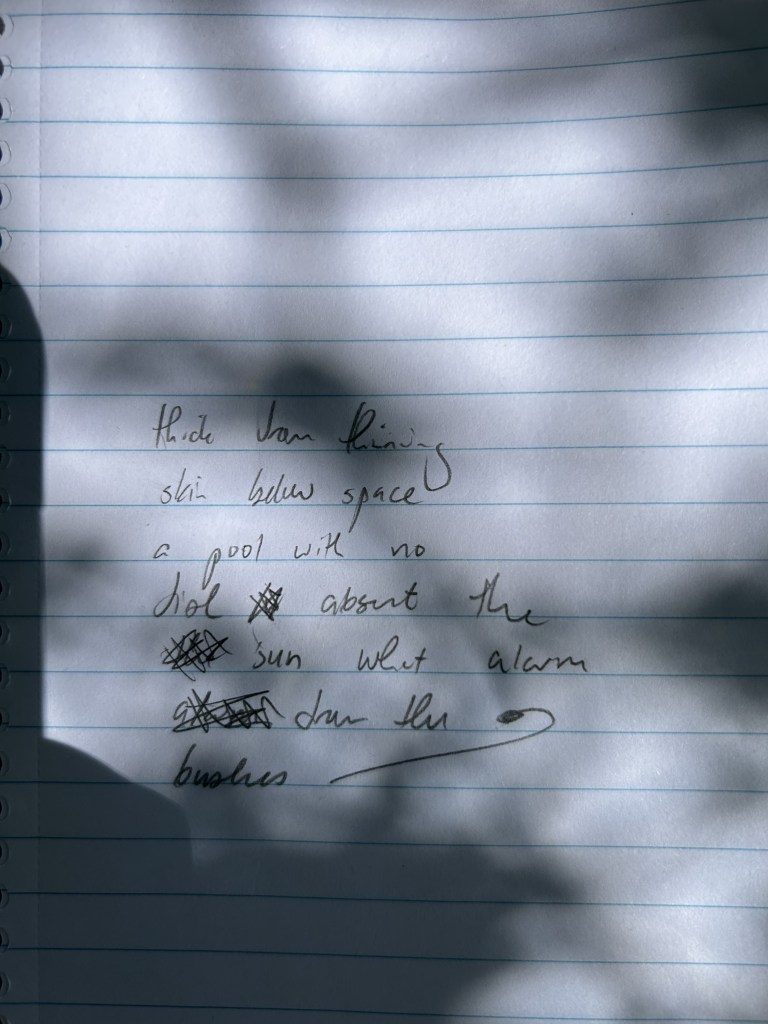 thick from thining
skin below space
a pool with no
dial absent the
sun what alarm
from the
bushes